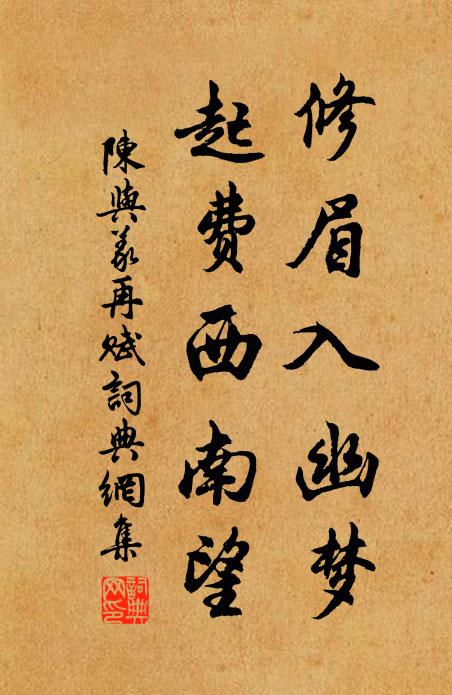 修眉入幽梦
起费西南望
陳與義再賦詞典網集
詞典网印